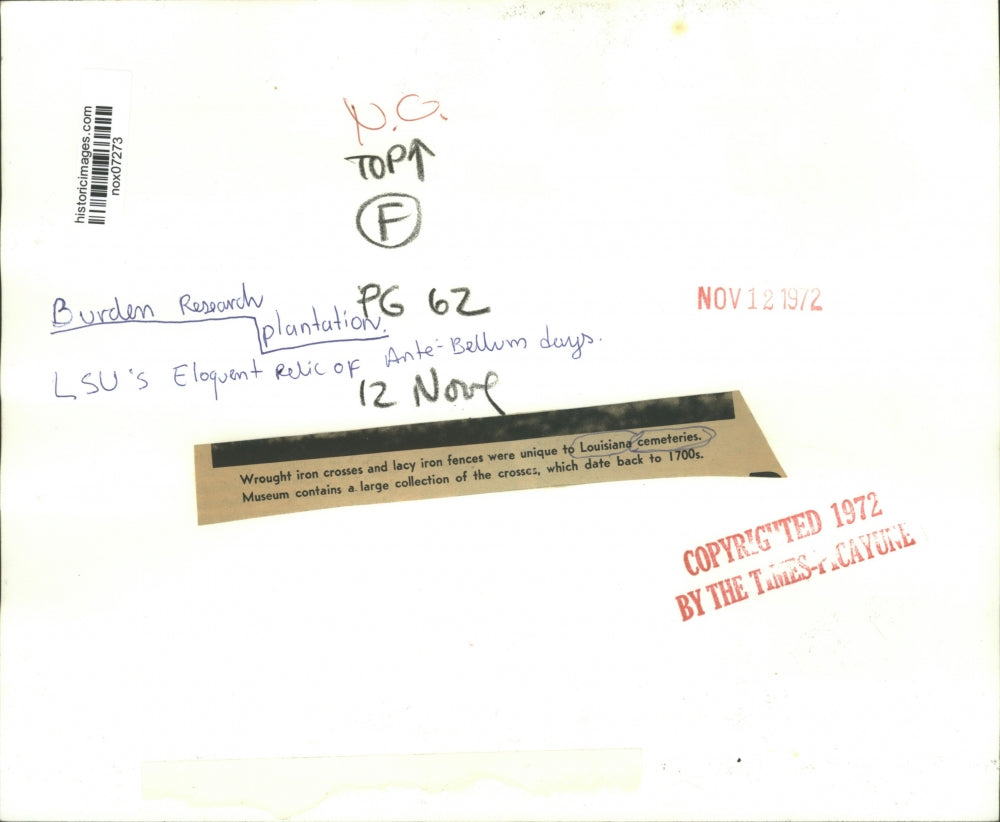 historicimages.com
nox07273
N.O.
TOP↑
F
Burden Research
plantation.
PG 62
NOV 12 1972
LSU's Eloquent Relic of Ante-Bellum days.
12 Nov
Wrought iron crosses and lacy iron fences were unique to Louisiana cemeteries.
Museum contains a large collection of the crosses, which date back to 1700s.
COPYRIGHTED 1972
BY THE TIMES-PICAYUNE